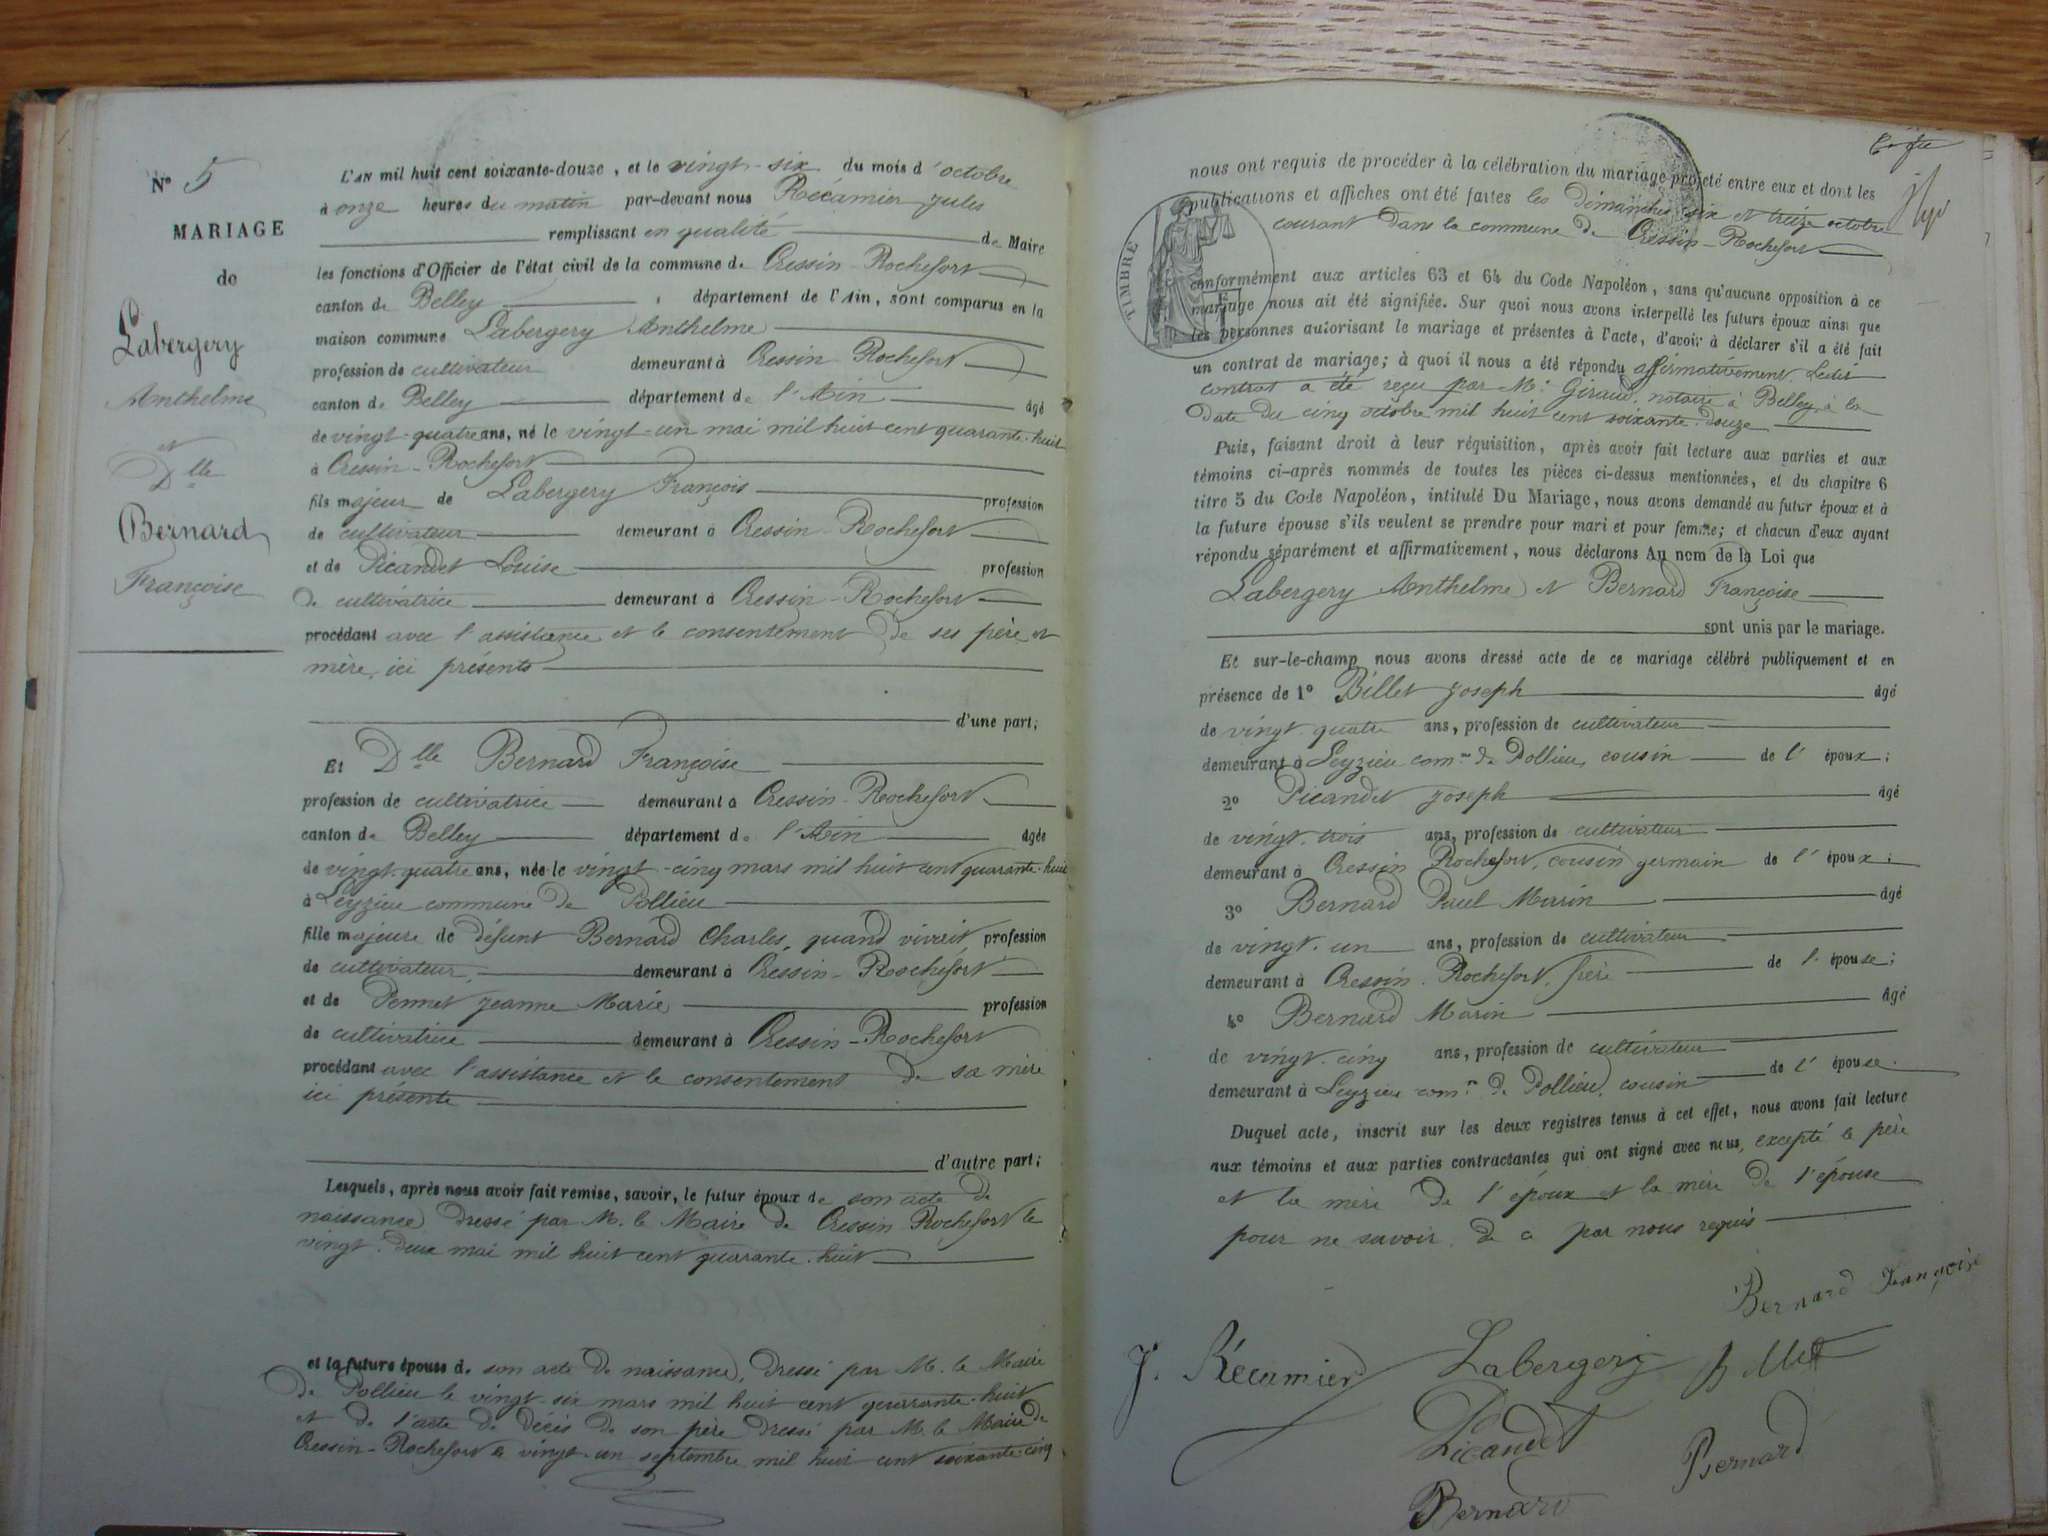 N° 5
MARIAGE
de
Labergery
Anthelme
et
Dlle
Bernard
Françoise
L'AN mil huit cent soixante-douze, et le vingt-six du mois d'octobre
à onze heures du matin par-devant nous Récamier Jules
remplissant en qualité de Maire
les fonctions d'Officier de l'état civil de la commune de Cressin-Rochefort
canton de Belley, département de l'Ain, sont comparus en la
maison commune Labergery Anthelme
profession de cultivateur demeurant à Cressin Rochefort
canton de Belley département de l'Ain âgé
de vingt-quatre ans, né le vingt-un mai mil huit cent quarante-huit
à Cressin-Rochefort
fils majeur de Labergery François profession
de cultivateur demeurant à Cressin-Rochefort
et de Picandet Louise profession
de cultivatrice demeurant à Cressin-Rochefort
procédant avec l'assistance et le consentement de ses père et
mère ici présents
d'une part;
Et Dlle Bernard Françoise
profession de cultivatrice demeurant à Cressin-Rochefort
canton de Belley département de l'Ain âgée
de vingt-quatre ans, née le vingt-cinq mars mil huit cent quarante-huit
à Leyzieu commune de Pollieu
fille majeure de défunt Bernard Charles, quand vivait profession
de cultivateur demeurant à Cressin-Rochefort
et de Pennet Jeanne Marie profession
de cultivatrice demeurant à Cressin-Rochefort
procédant avec l'assistance et le consentement de sa mère
ici présente
d'autre part;
Lesquels, après nous avoir fait remise, savoir, le futur époux de son acte de
naissance dressé par M. le Maire de Cressin Rochefort le
vingt-deux mai mil huit cent quarante-huit
et la future épouse de son acte de naissance, dressé par M. le Maire
de Pollieu le vingt-six mars mil huit cent quarante-huit
et de l'acte de décès de son père dressé par M. le Maire de
Cressin-Rochefort le vingt-un septembre mil huit cent soixante-cinq
nous ont requis de procéder à la célébration du mariage projeté entre eux et dont les
publications et affiches ont été faites les dimanches six et treize octobre
courant dans la commune de Cressin-Rochefort
TIMBRE
conformément aux articles 63 et 64 du Code Napoléon, sans qu'aucune opposition à ce
mariage nous ait été signifiée. Sur quoi nous avons interpellé les futurs époux ainsi que
les personnes autorisant le mariage et présentes à l'acte, d'avoir à déclarer s'il a été fait
un contrat de mariage; à quoi il nous a été répondu affirmativement. Ledit
contrat a été reçu par Me Giraud, notaire à Belley, à la
date du cinq octobre mil huit cent soixante-douze
Puis, faisant droit à leur réquisition, après avoir fait lecture aux parties et aux
témoins ci-après nommés de toutes les pièces ci-dessus mentionnées, et du chapitre 6
titre 5 du Code Napoléon, intitulé Du Mariage, nous avons demandé au futur époux et à
la future épouse s'ils veulent se prendre pour mari et pour femme; et chacun d'eux ayant
répondu séparément et affirmativement, nous déclarons Au nom de la Loi que
Labergery Anthelme et Bernard Françoise
sont unis par le mariage.
Et sur-le-champ nous avons dressé acte de ce mariage célébré publiquement et en
présence de 1° Billet Joseph âgé
de vingt-quatre ans, profession de cultivateur
demeurant à Leyzieu comne de Pollieu, cousin de l'époux;
2° Picandet Joseph âgé
de vingt-trois ans, profession de cultivateur
demeurant à Cressin Rochefort, cousin germain de l'époux;
3° Bernard Paul Marin âgé
de vingt-un ans, profession de cultivateur
demeurant à Cressin-Rochefort, frère de l'épouse;
4° Bernard Marin âgé
de vingt-cinq ans, profession de cultivateur
demeurant à Leyzieu comne de Pollieu, cousin de l'épouse.
Duquel acte, inscrit sur les deux registres tenus à cet effet, nous avons fait lecture
aux témoins et aux parties contractantes qui ont signé avec nous, excepté le père
et la mère de l'époux et la mère de l'épouse
pour ne savoir, de ce par nous requis
Bernard Françoise
J. Récamier Labergery Billet
Picandet
Bernard
Bernard